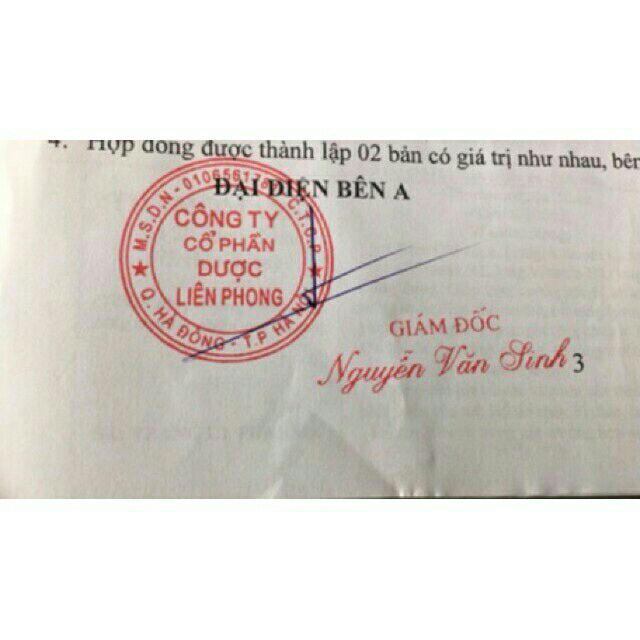 4. Hợp đồng được thành lập 02 bản có giá trị như nhau, bên
ĐẠI DIỆN BÊN A
M.S.D.N - C.T.C.P
CÔNG TY
CỔ PHẦN
DƯỢC
LIÊN PHONG
Q. HÀ ĐÔNG - T.P HÀ NỘI
GIÁM ĐỐC
Nguyễn Văn Sinh 3